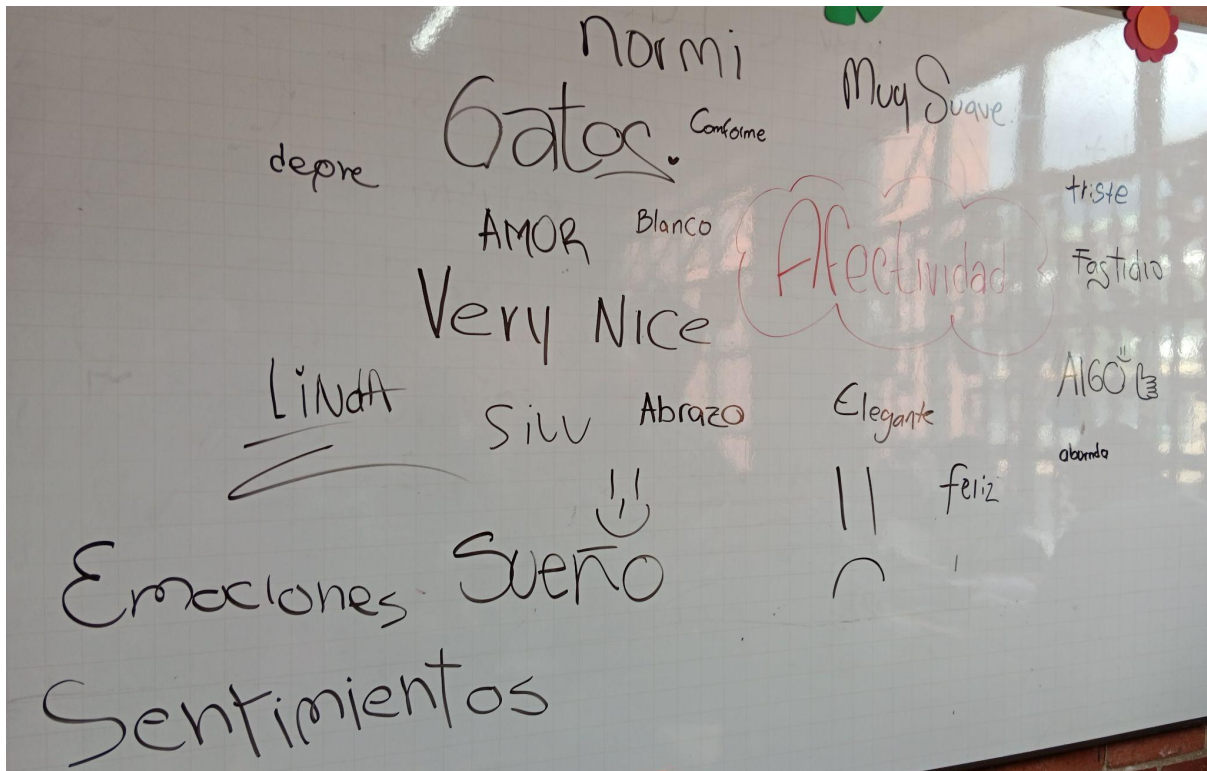 normi
Muy Suave
Gatos.
Conforme
depre
triste
AMOR
Blanco
Afectividad
Fastidio
Very NICE
LiNdA
Abrazo
Elegante
AlGO
feliz
Sueño
Emociones
Sentimientos